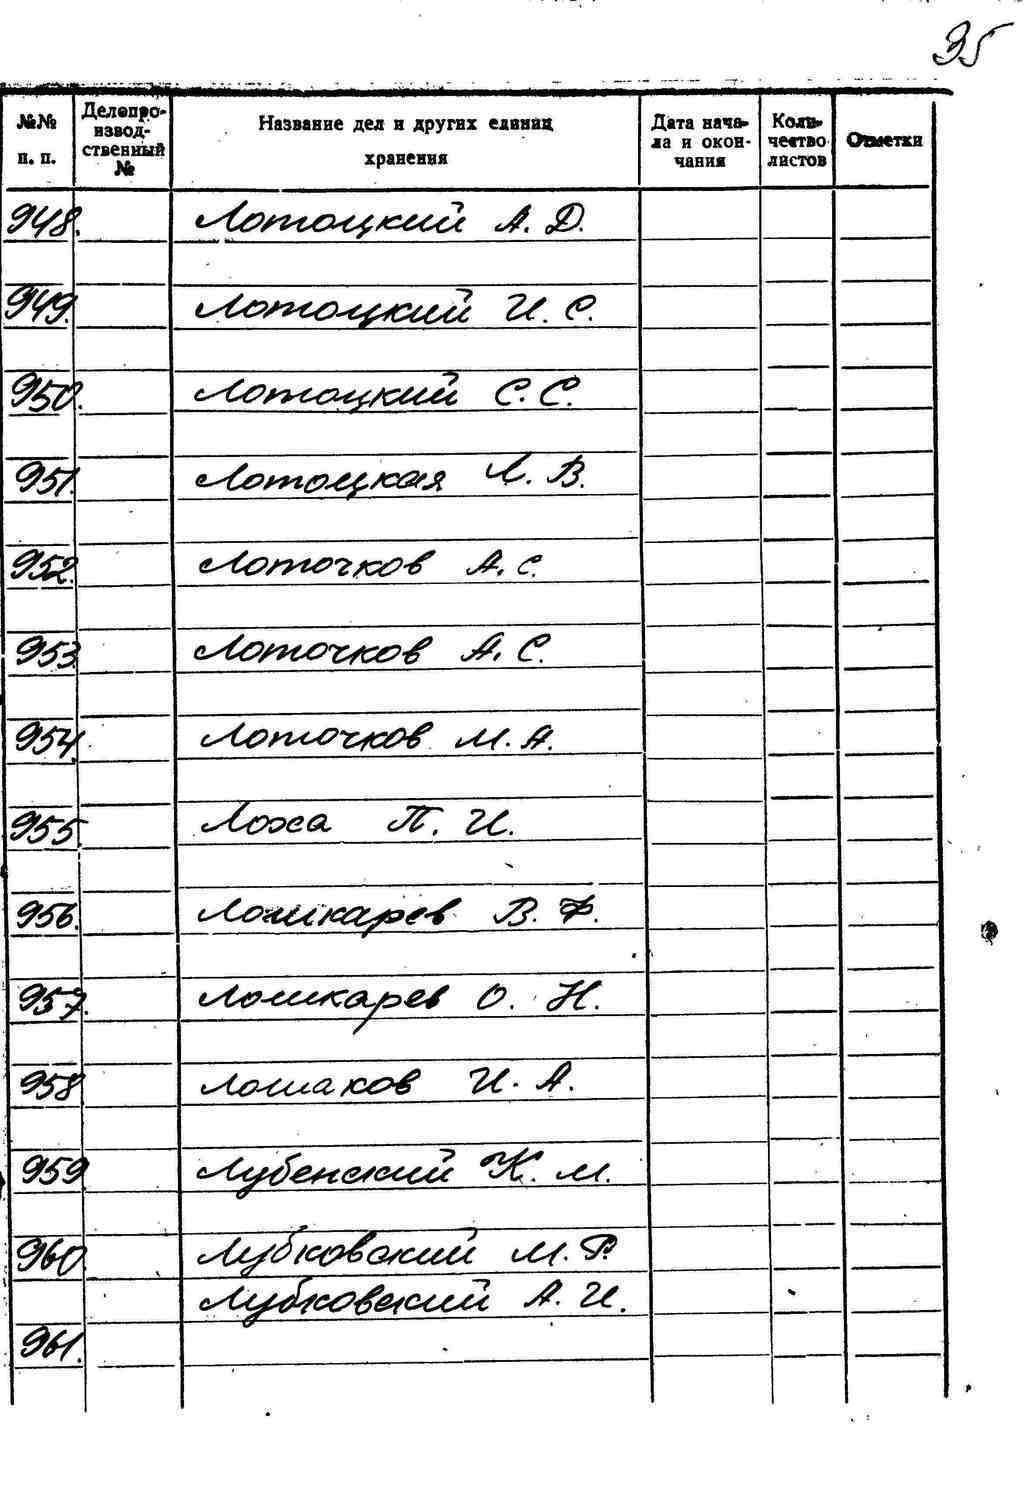 35
№№ п. п. Делопроизводственный № Название дел и других единиц хранения Дата начала и окончания Количество листов Отметки
948. Лотоцкий А. Д.
949. Лотоцкий И. С.
950. Лотоцкий С. С.
951. Лотоцкая Л. В.
952. Лоточков А. С.
953. Лоточков А. С.
954. Лоточков М. А.
955. Лоха П. И.
956. Лошкарев В. Ф.
957. Лошкарев О. Н.
958. Лошаков И. А.
959. Лубенский К. М.
960. Лубковский М. Р.
Лубковский А. И.
961.